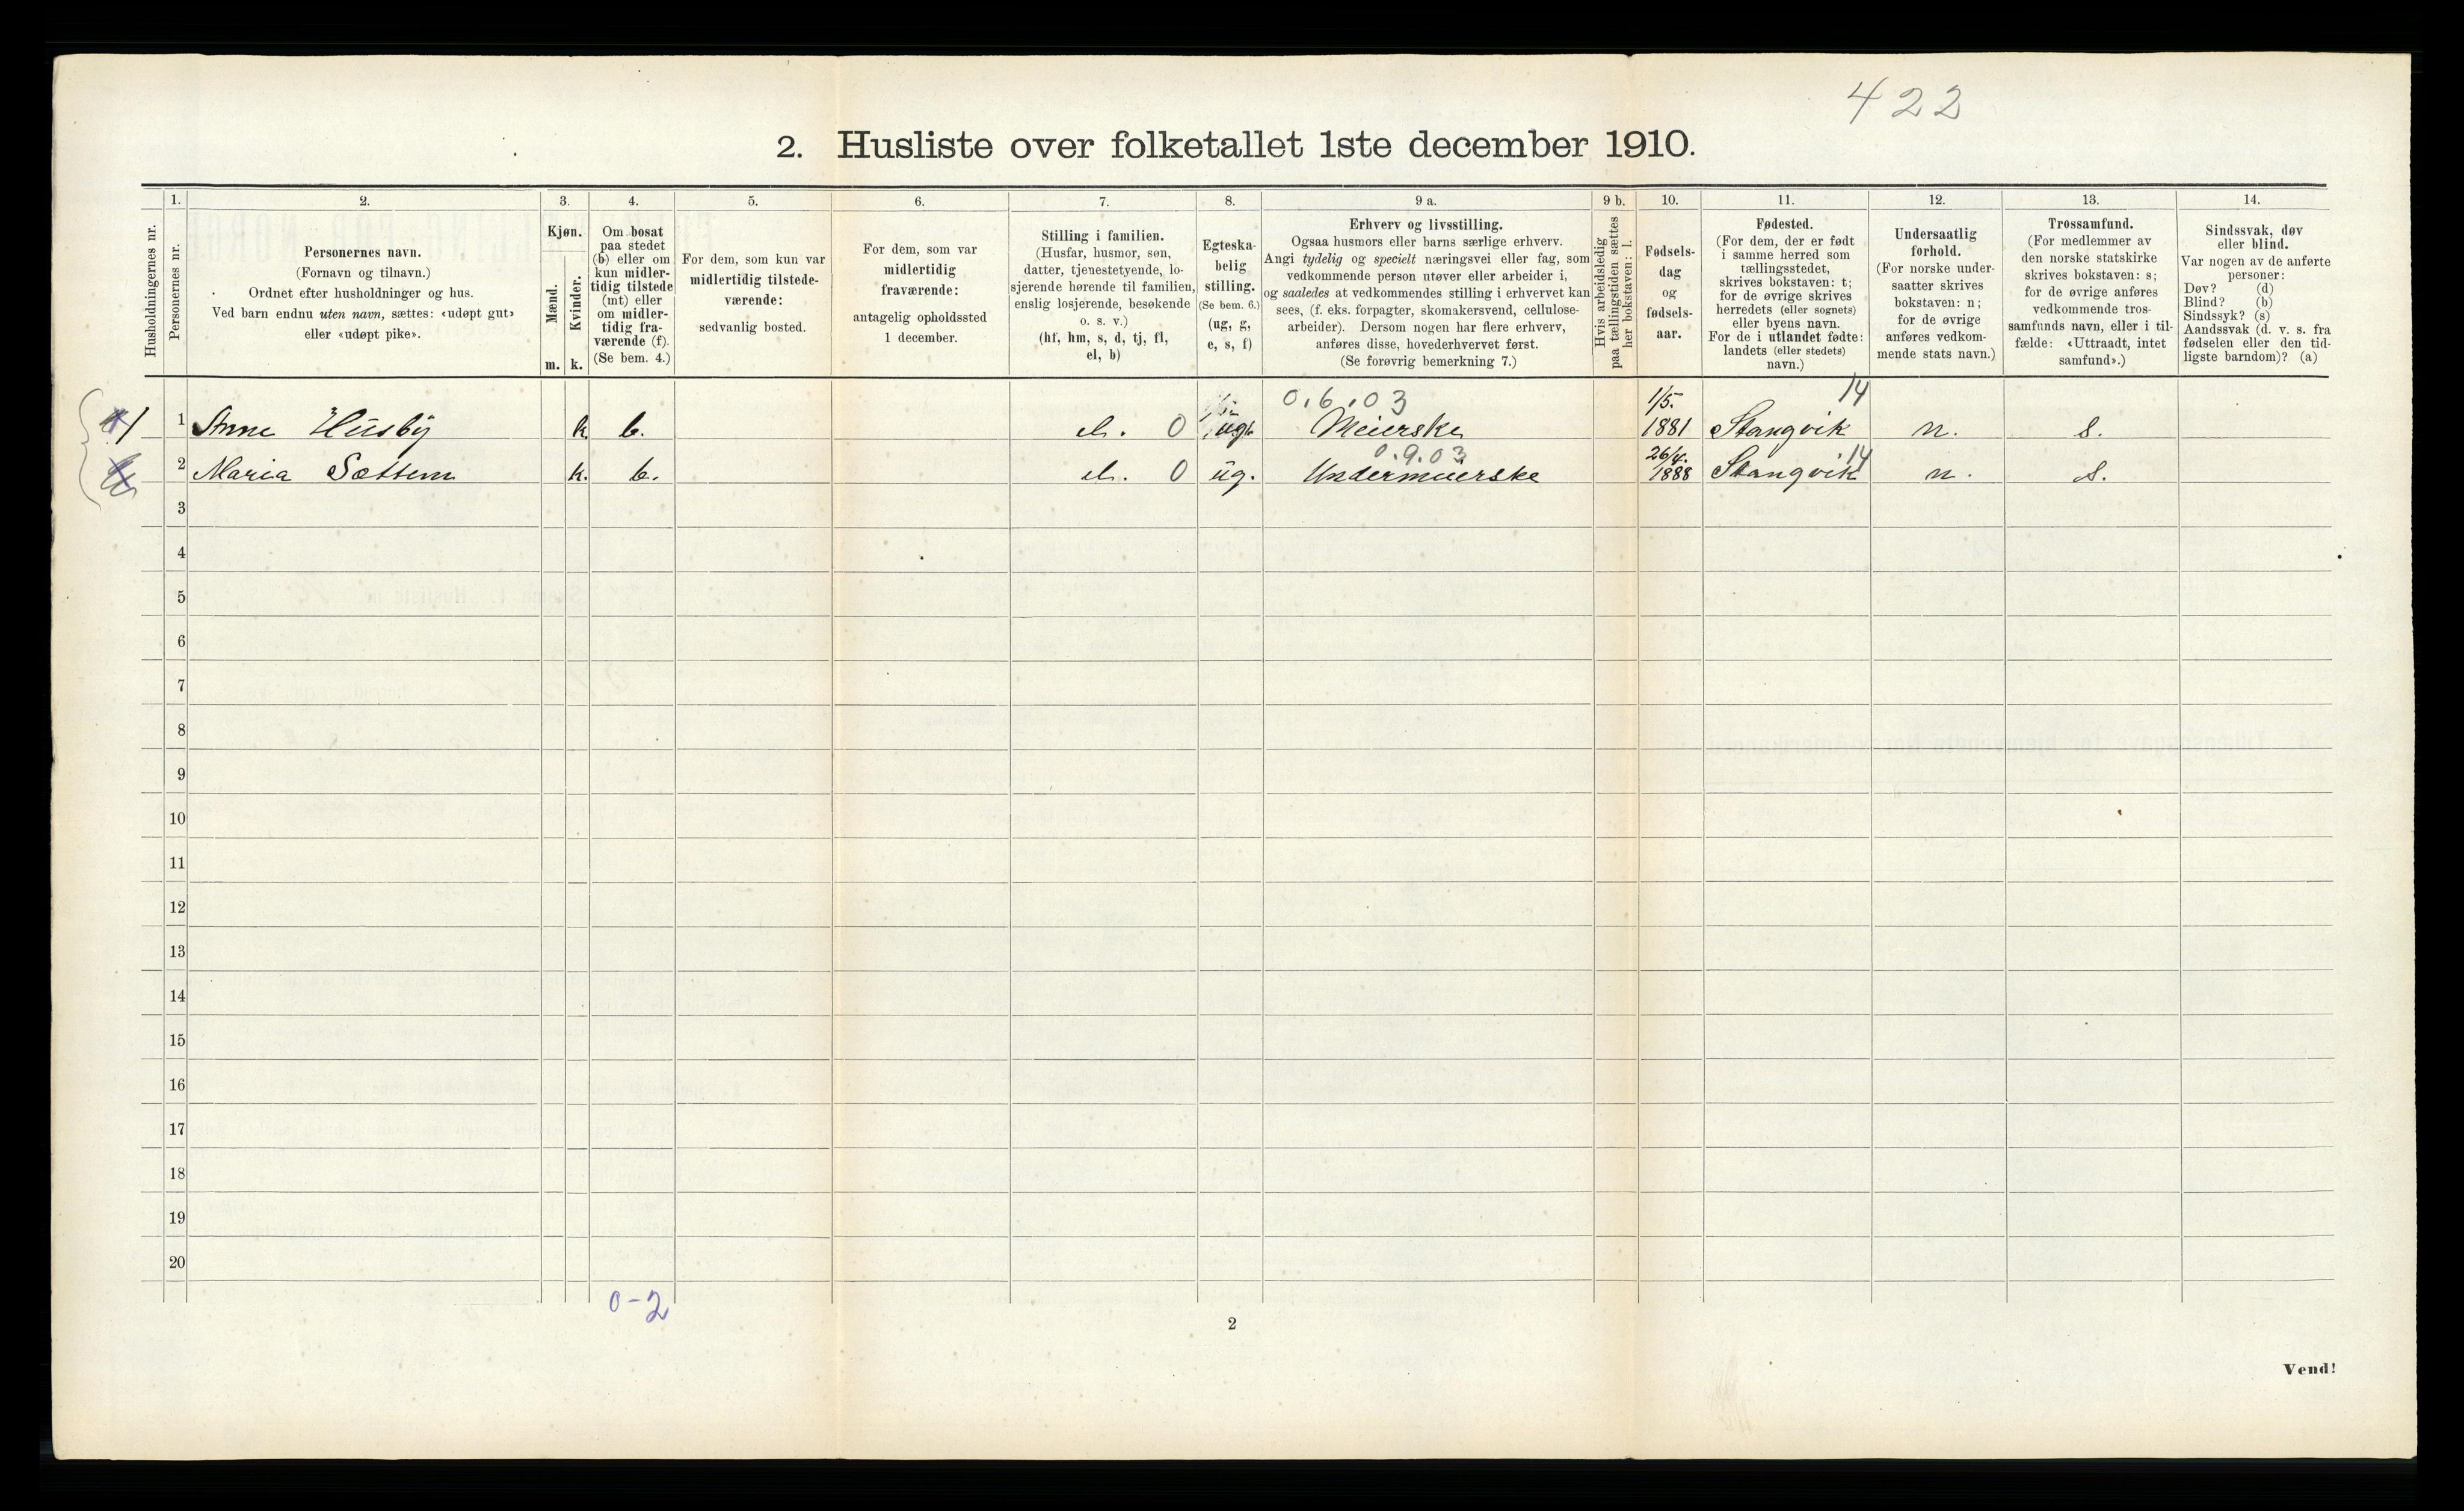 422
2. Husliste over folketallet 1ste december 1910.
1. 2. 3. 4. 5. 6. 7. 8. 9 a. 9 b. 10. 11. 12. 13. 14.
Husholdningernes nr.
Personernes nr.
Personernes navn.
(Fornavn og tilnavn.)
Ordnet efter husholdninger og hus.
Ved barn endnu uten navn, sættes: «udøpt gut»
eller «udøpt pike».
Kjøn.
Mænd.
Kvinder.
m. k.
Om bosat
paa stedet
(b) eller om
kun midler-
tidig tilstede
(mt) eller
om midler-
tidig fra-
værende (f).
(Se bem. 4.)
For dem, som kun var
midlertidig tilstede-
værende:
sedvanlig bosted.
For dem, som var
midlertidig
fraværende:
antagelig opholdssted
1 december.
Stilling i familien.
(Husfar, husmor, søn,
datter, tjenestetyende, lo-
sjerende hørende til familien,
enslig losjerende, besøkende
o. s. v.)
(hf, hm, s, d, tj, fl,
el, b)
Egteska-
belig
stilling.
(Se bem. 6.)
(ug, g,
e, s, f)
Erhverv og livsstilling.
Ogsaa husmors eller barns særlige erhverv.
Angi tydelig og specielt næringsvei eller fag, som
vedkommende person utøver eller arbeider i,
og saaledes at vedkommendes stilling i erhvervet kan
sees, (f. eks. forpagter, skomakersvend, cellulose-
arbeider). Dersom nogen har flere erhverv,
anføres disse, hovederhvervet først.
(Se forøvrig bemerkning 7.)
Hvis arbeidsledig
paa tællingstiden sættes
her bokstaven: l.
Fødsels-
dag
og
fødsels-
aar.
Fødested.
(For dem, der er født
i samme herred som
tællingsstedet,
skrives bokstaven: t;
for de øvrige skrives
herredets (eller sognets)
eller byens navn.
For de i utlandet fødte:
landets (eller stedets)
navn.)
Undersaatlig
forhold.
(For norske under-
saatter skrives
bokstaven: n;
for de øvrige
anføres vedkom-
mende stats navn.)
Trossamfund.
(For medlemmer av
den norske statskirke
skrives bokstaven: s;
for de øvrige anføres
vedkommende tros-
samfunds navn, eller i til-
fælde: «Uttraadt, intet
samfund».)
Sindssvak, døv
eller blind.
Var nogen av de anførte
personer:
Døv? (d)
Blind? (b)
Sindssyk? (s)
Aandssvak (d. v. s. fra
fødselen eller den tid-
ligste barndom)? (a)
0.6.03 1/5. 14
1 1 Anne Husby k. b. el. 0 ug. Meierske 1881 Stangvik n. s.
0.9.03 26/4. 14
2 Maria Sættem k. b. el. 0 ug. Undermeierske 1888 Stangvik n. s.
3
4
5
6
7
8
9
10
11
12
13
14
15
16
17
18
19
20
0-2
2
Vend!